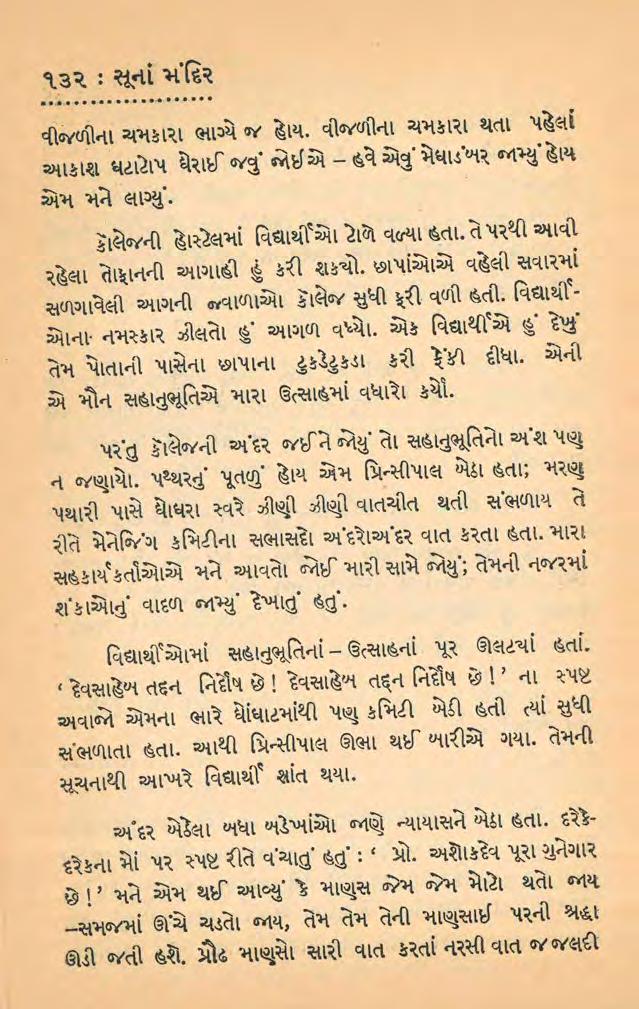 ૧૩૨ : સૂનાં મંદિર
વીજળીના ચમકારા ભાગ્યે જ હોય. વીજળીના ચમકારા થતા પહેલાં
આકાશ ઘટાટોપ ઘેરાઈ જવું જોઈએ – હવે એવું મેઘાડંબર જામ્યું હોય
એમ મને લાગ્યું.
કૉલેજની હોસ્ટેલમાં વિદ્યાર્થીઓ ટોળે વળ્યા હતા. તે પરથી આવી
રહેલા તોફાનની આગાહી હું કરી શકયો. છાપાંઓએ વહેલી સવારમાં
સળગાવેલી આગની જ્વાળાઓ કૉલેજ સુધી ફરી વળી હતી. વિદ્યાર્થી-
ઓના નમસ્કાર ઝીલતો હું આગળ વધ્યો. એક વિદ્યાર્થીએ હું દેખું
તેમ પોતાની પાસેના છાપાના ટુકડેટુકડા કરી ફેંકી દીધા. એની
એ મૌન સહાનુભૂતિએ મારા ઉત્સાહમાં વધારો કર્યો.
પરંતુ કૉલેજની અંદર જઈને જોયું તો સહાનુભૂતિનો અંશ પણ
ન જણાયો. પથ્થરનું પૂતળું હોય એમ પ્રિન્સીપાલ બેઠા હતા; મરણ
પથારી પાસે ઘોઘરા સ્વરે ઝીણી ઝીણી વાતચીત થતી સંભળાય તે
રીતે મેનેજિંગ કમિટીના સભાસદો અંદરોઅંદર વાત કરતા હતા. મારા
સહકાર્યકર્તાઓએ મને આવતો જોઈ મારી સામે જોયું; તેમની નજરમાં
શંકાઓનું વાદળ જામ્યું દેખાતું હતું.
વિદ્યાર્થીઓમાં સહાનુભૂતિનાં – ઉત્સાહનાં પૂર ઊલટયાં હતાં.
‘ દેવસાહેબ તદ્દન નિર્દોષ છે ! દેવસાહેબ તદ્દન નિર્દોષ છે ! ’ ના સ્પષ્ટ
અવાજો એમના ભારે ઘોંઘાટમાંથી પણ કમિટી બેઠી હતી ત્યાં સુધી
સંભળાતા હતા. આથી પ્રિન્સીપાલ ઊભા થઈ બારીએ ગયા. તેમની
સૂચનાથી આખરે વિદ્યાર્થી શાંત થયા.
અંદર બેઠેલા બધા બડેખાંઓ જાણે ન્યાયાસને બેઠા હતા. દરેકે-
દરેકના મોં પર સ્પષ્ટ રીતે વંચાતું હતું : ‘ પ્રો. અશોકદેવ પૂરા ગુનેગાર
છે ! ’ મને એમ થઈ આવ્યું કે માણસ જેમ જેમ મોટો થતો જાય
–સમજમાં ઊંચે ચડતો જાય, તેમ તેમ તેની માણસાઈ પરની શ્રદ્ધા
ઊડી જતી હશે. પ્રૌઢ માણસો સારી વાત કરતાં નરસી વાત જ જલદી